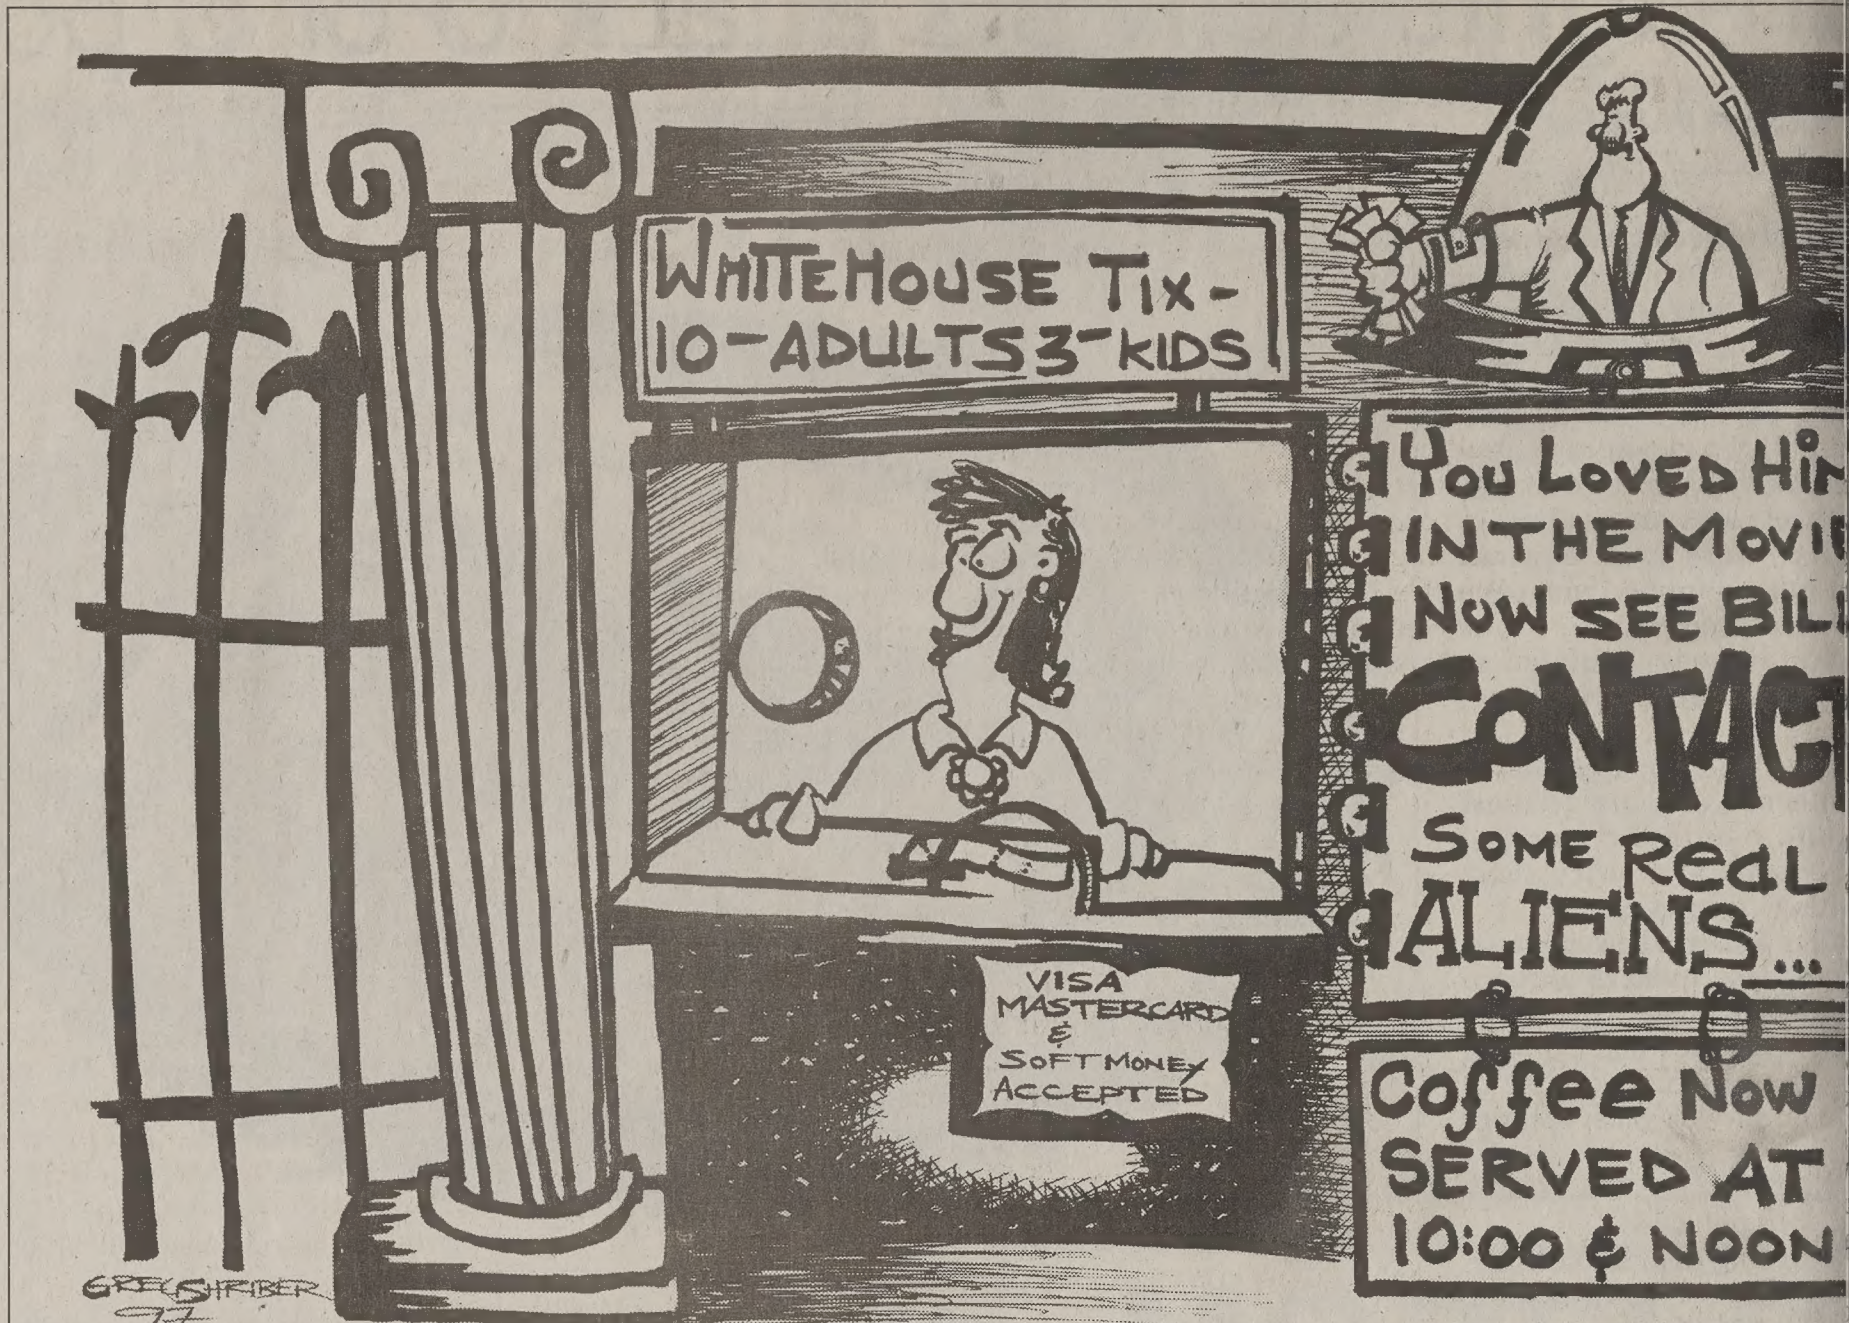 WHITEHOUSE TIX-
10-ADULTS 3-KIDS
YOU LOVED HIM
IN THE MOVIE
NOW SEE BILL
CONTACT
SOME REAL
ALIENS...
VISA
MASTERCARD
&
SOFT MONEY
ACCEPTED
Coffee NOW
SERVED AT
10:00 & NOON
GREG SHRIBER
97